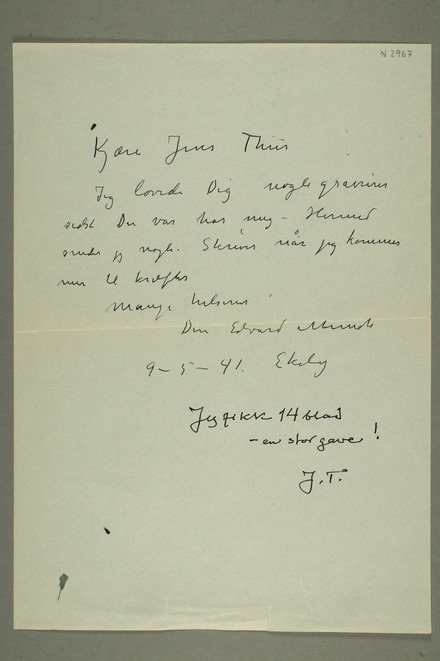 N 2967
Kjære Jens Thiis
Jeg lovede Dig nogle gravurer
sidst Du var hos mig – Hermed
sender jeg nogle. Skriver når jeg kommer
mer til kræfter
Mange hilsener
Din Edvard Munch
9 – 5 – 41. Ekely
Jeg fikk 14 blad
– en stor gave!
J.T.